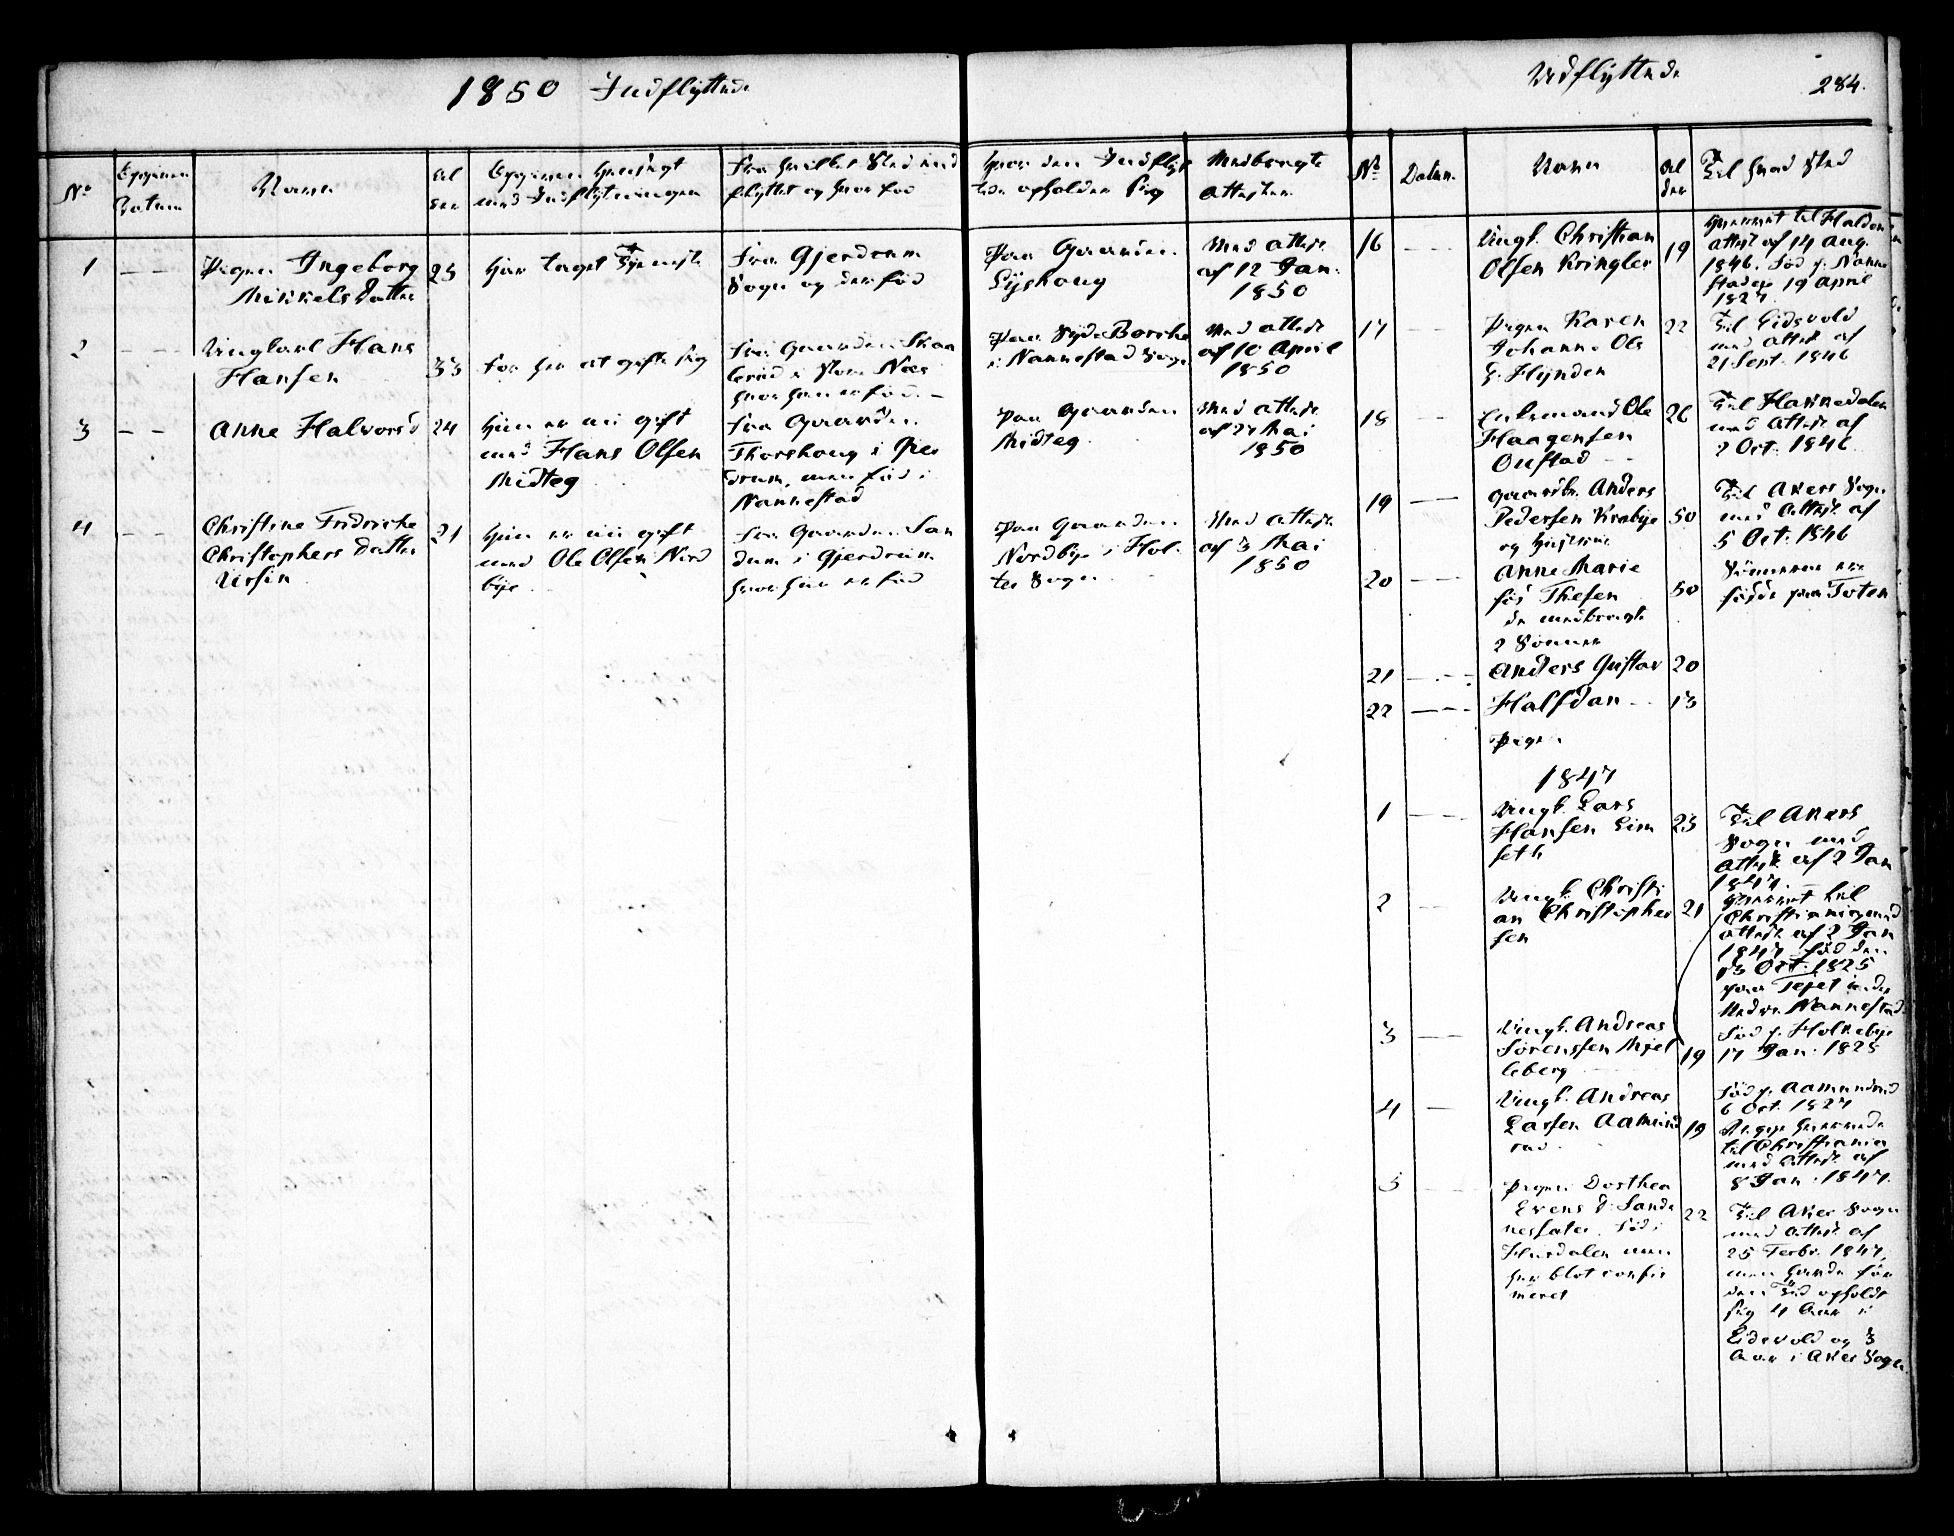 1850 Indflyttede
Udflyttede
284.
No
Datum
Navn
Al
der
med Indflytningen
Fra hvilket Sted ind
flyttet og hvor fød
Hvor den Indflyt
tede opholder sig
Medbragte
Attester
No
Datum
Navn
Al
der
Til hvad Sted
1
Pigen Ingeborg
Mikkels Datter
25
Har taget Tjeneste
Fra Gjerdrum
Sogn og der fød
Paa Gaarden
Lyshoug
Med Attest
af 12 Jan.
1850
2
Ungkarl Hans
Hansen
33
for her at gifte sig
Fra Gaarden Skaa
lerud i Store Næs
hvor han er fød
Paa Søde Borcke
i Nannestad Sogn
Med Attest
af 10 April
1850
3
Anne Halvorsd
24
Hun er nu gift
med Hans Olsen
Midteg
fra Gaarden
Thorshoug i Gjer
drum, men fød i
Nannestad
Paa Gaarden
Midteg
Med Attest
af 27 Mai
1850
4
Christine Fridricke
Christophers Datter
Ursin
21
Hun er nu gift
med Ole Olsen Nord
bye
fra Gaarden San
dum i Gjerdrum
hvor hun er fød
Paa Gaarden
Nordbye i Hol
ter Sogn
Med Attest
af 3 Mai
1850
16
Ungk. Christian
Olsen Kringler
19
Hjemret til Halden
Attest af 14 Aug.
1846. Fød p. Nanne
stad 19 April
1827
17
Pigen Karen
Johanne Ols
d. Flynden
22
Til Eidsvold
med Attest af
21 Sept. 1846
18
Enkemand Ole
Haagensen
Oustad
26
Til Hakkedalen
med Attest af
2 Oct. 1846
19
Gaardbr. Anders
Pedersen Krabye
og Hustrue
50
Til Akers Sogn
med Attest af
5 Oct. 1846
20
Anne Marie
fød Thesen
de medbragte
2 Sønner
50
Sønnerne ere
fødde paa Toten
21
Anders Gustav
20
22
Halfdan
13
Pigen
1847
1
Ungk. Lars
Hansen Lim
seth
23
Til Akers
Sogn med
Attest af 2 Jan
1847
2
Ungk. Christi
an Christopher
sen
21
til
Christiania med
Attest af 2 Jan
1847 fød den
13 Oct. 1825
paa Tejet under
Nedre Nannestad
3
Ungk. Andreas
Sørenssen Mjel
leberg
19
Fød p. Holkebye
17 Jan. 1828
4
Ungk. Andreas
Larsen Aamund
rud
19
Fød p. Aamundrud
6 Oct. 1827
Begge
til Christiania
med Attest af
8 Jan. 1847.
5
Pigen Dorthea
Evens d. Sande
nesfater fød i
Hurdalen men
her blot confir
meret
22
Til Aker Sogn
med Attest af
25 Febr. 1847,
men havde før
den Tid opholdt
sig 4 Aar i
Eidsvold og 3
Aar i Aker Sogn